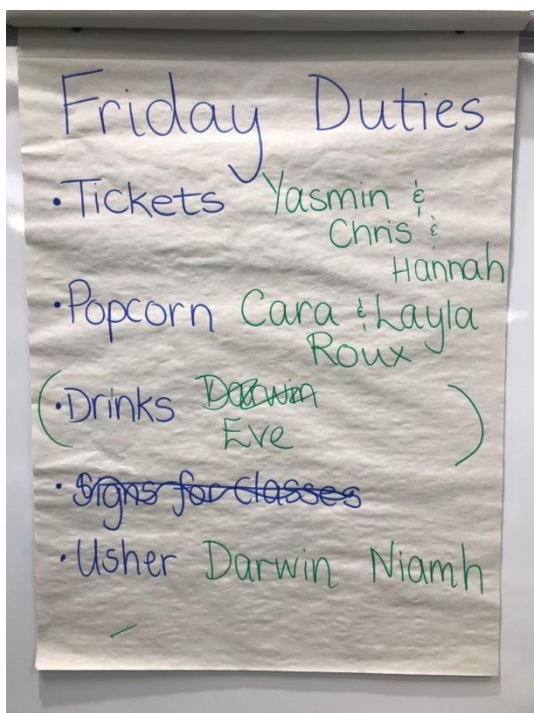 Friday Duties
• Tickets Yasmin &
Chris &
Hannah
• Popcorn Cara & Layla
Roux
( • Drinks Darwin )
Eve
• Signs for Classes
• Usher Darwin Niamh